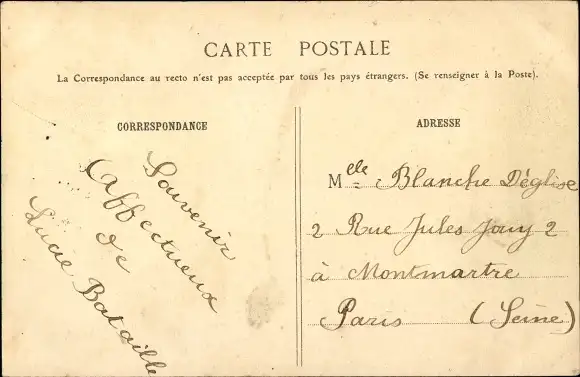 CARTE POSTALE
La Correspondance au recto n'est pas acceptée par tous les pays étrangers. (Se renseigner à la Poste).
CORRESPONDANCE
Souvenir
Affectueux
de
Lucie Bataille
ADRESSE
Melle Blanche Déglise
2 Rue Jules Jouy 2
à Montmartre
Paris (Seine)